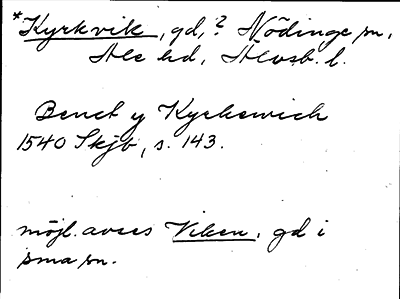 *Kyrkvik, gd, ? Nödinge sn,
Ale hd, Älvsb. l.
Benct y Kyrkewich
1540 Skjb, s. 143.
möjl. avses Viken, gd i
sma sn.